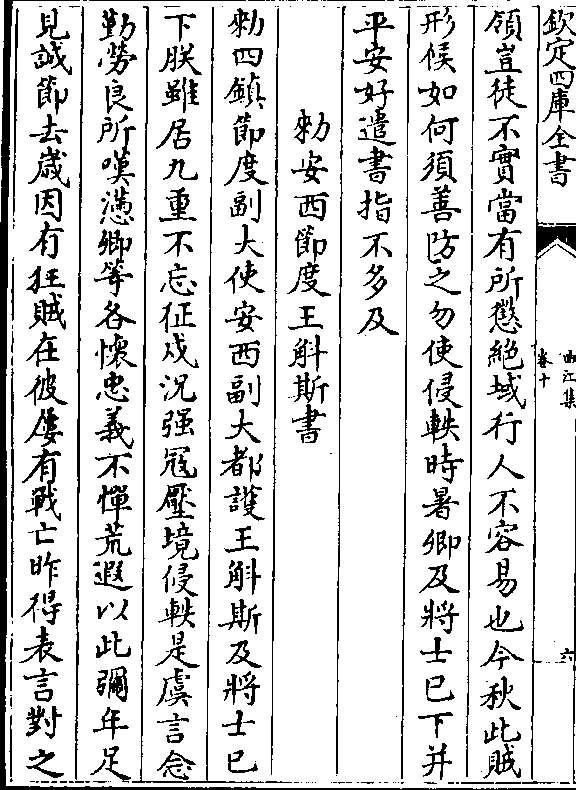 欽定四庫全書
曲江集
卷十
六
領豈徒不實當有所懲絶域行人不容易也今秋此賊
形候如何須善防之勿使侵軼時暑卿及將士已下并
平安好遣書指不多及
勑安西節度王斛斯書
勑四鎮節度副大使安西副大都護王斛斯及將士已
下朕雖居九重不忘征戍況强冦壓境侵軼是虞言念
勤勞良所嘆懣卿等各懷忠義不憚荒遐以此彌年足
見誠節去歲因有狂賊在彼屢有戰亡昨得表言對之